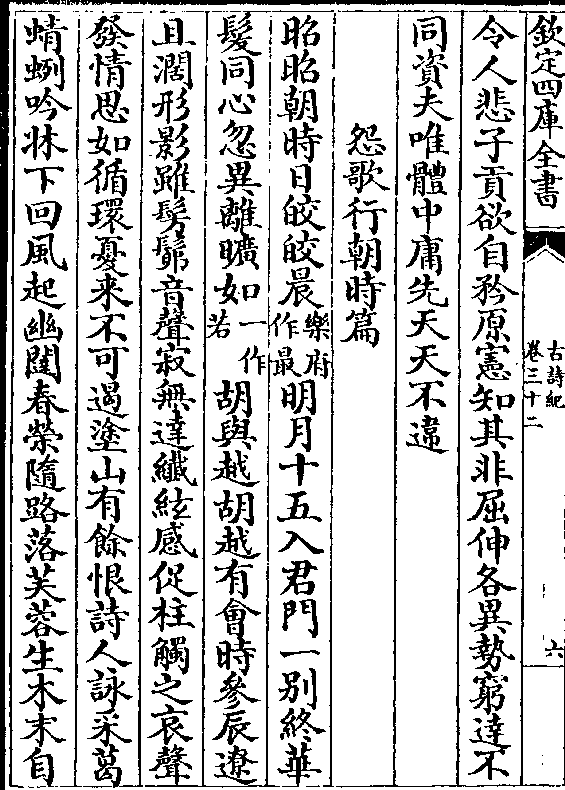 欽定四庫全書
古詩紀
卷三十二
六
令人悲子貢欲自矜原憲知其非屈伸各異勢窮達不
同資夫唯體中庸先天天不違
怨歌行朝時篇
昭昭朝時日皎皎晨樂府作最明月十五入君門一别終華
髮同心忽異離曠如一作若胡與越胡越有會時參辰遼
且濶形影雖髣髴音聲寂無達纎絃感促柱觸之哀聲
發情思如循環憂来不可遏塗山有餘恨詩人詠采葛
蜻蛚吟牀下回風起幽闥春榮隨路落芙蓉生木末自